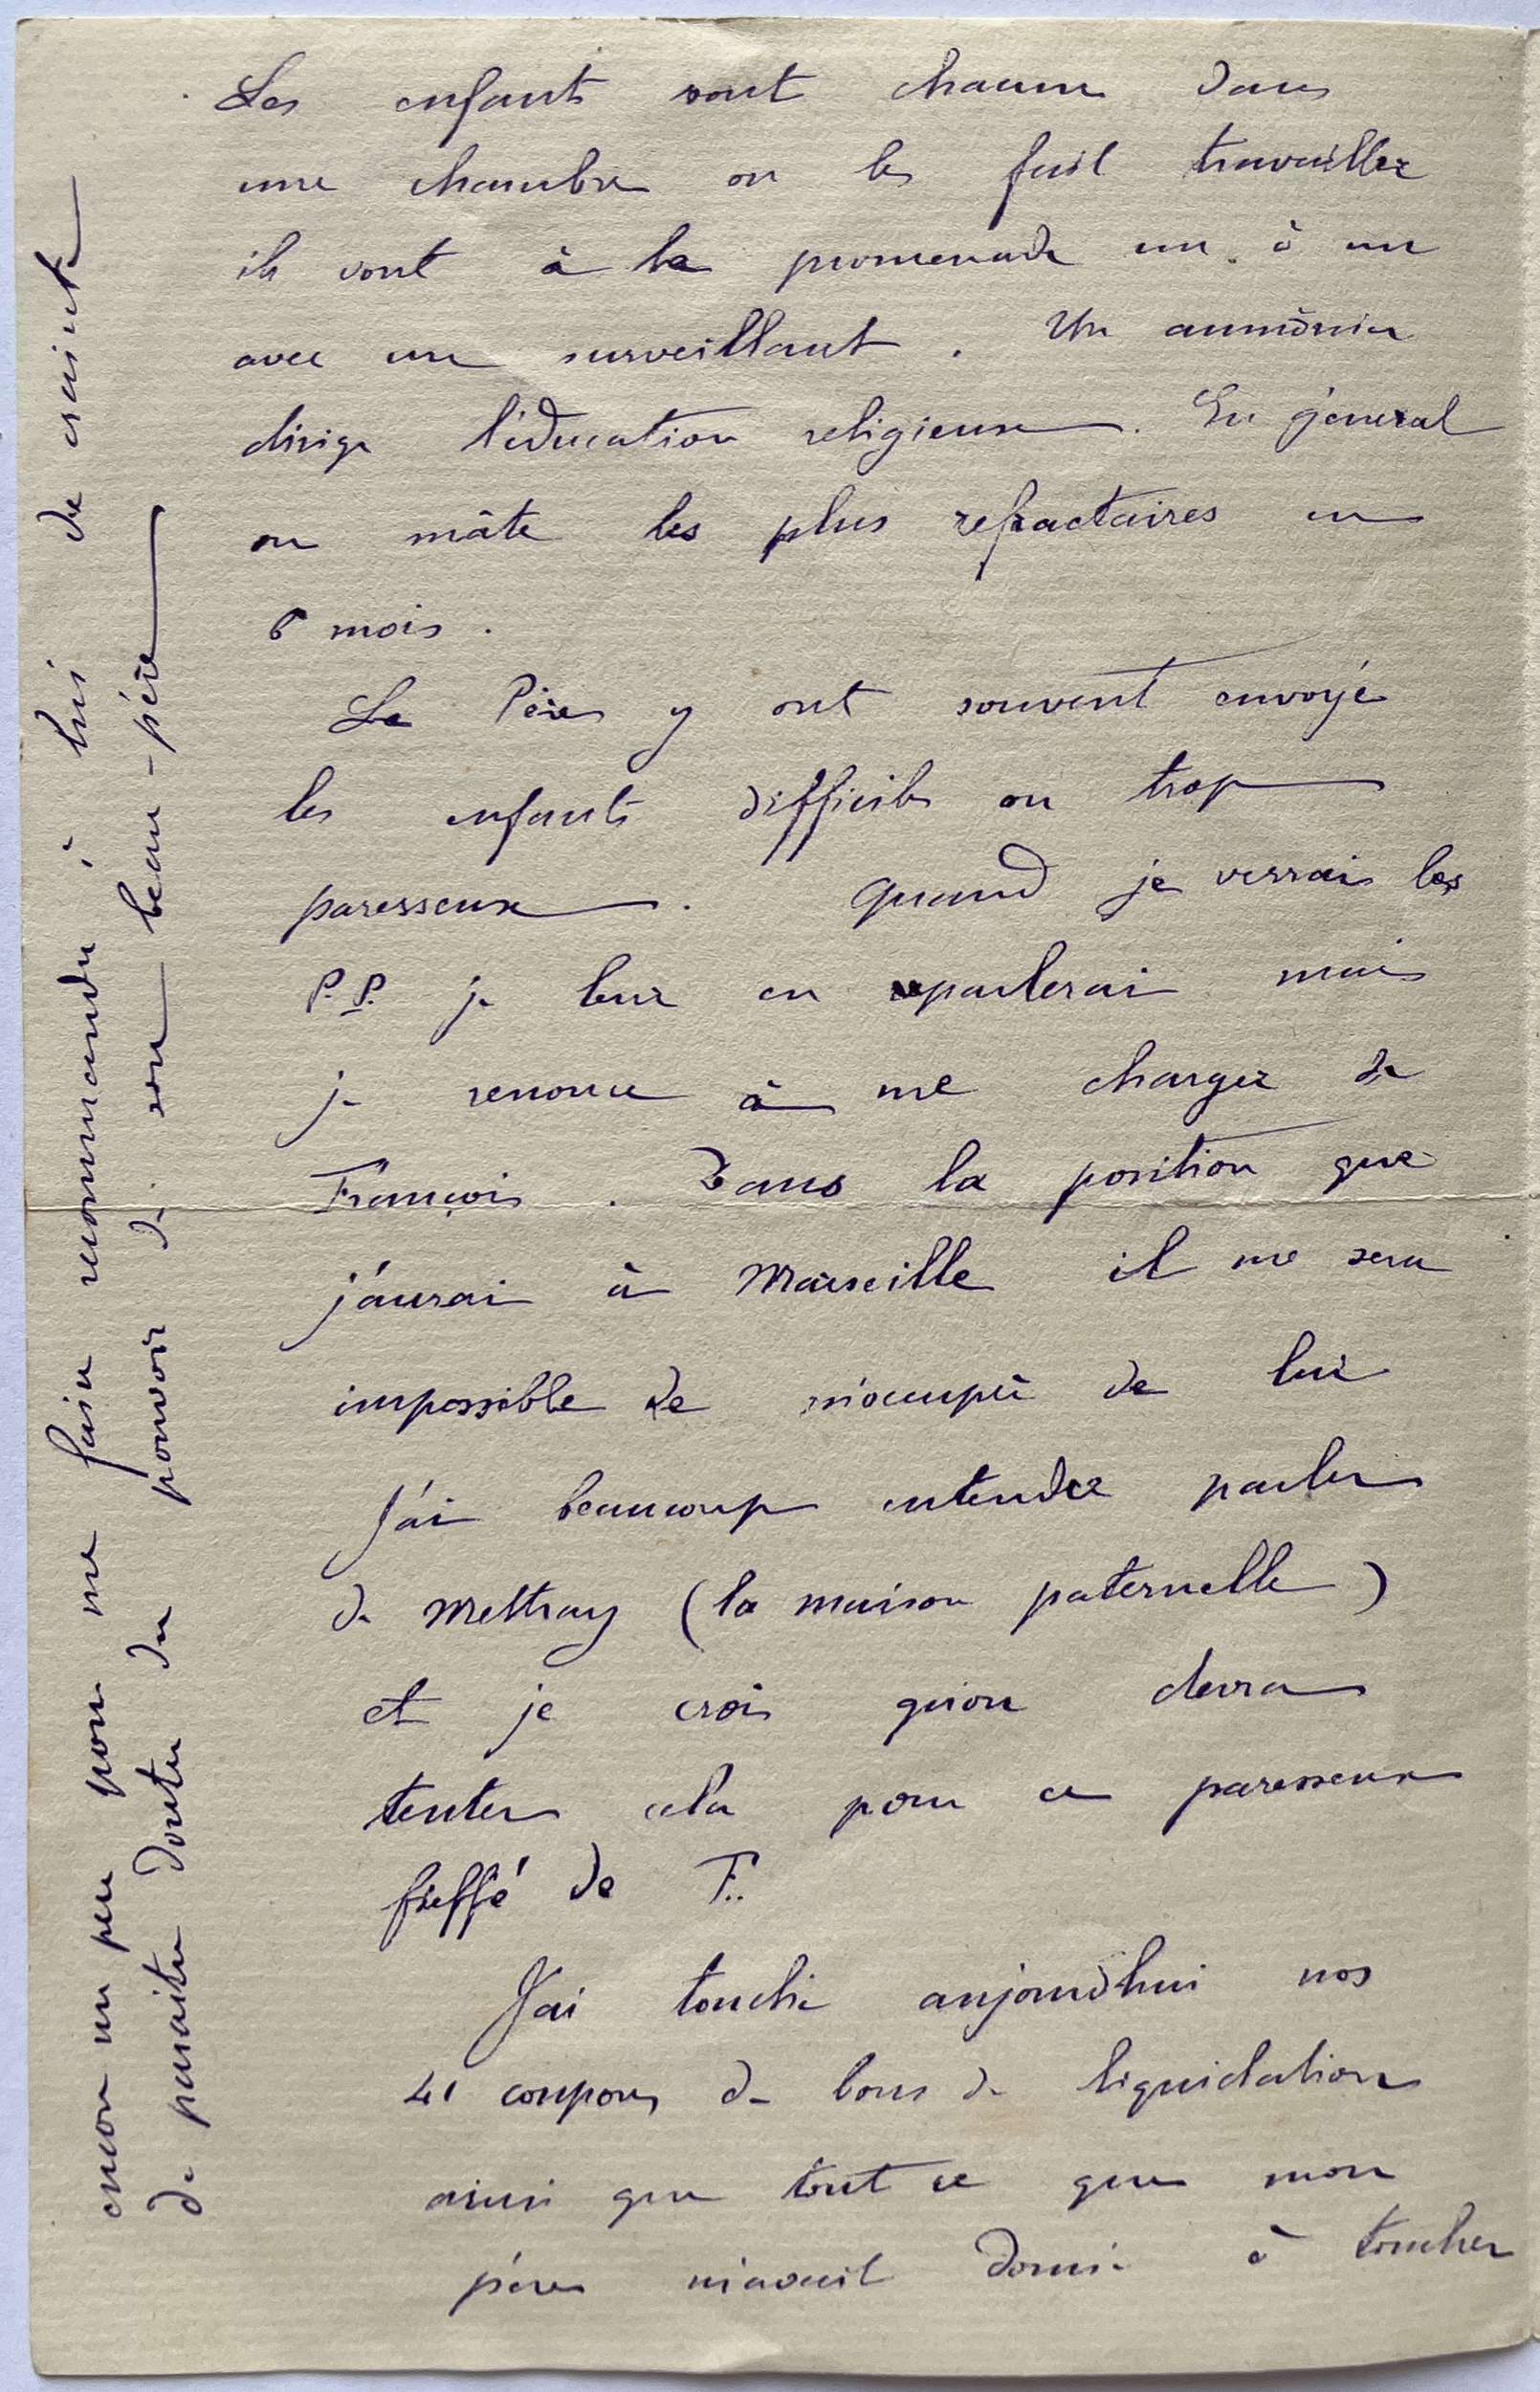 Les enfants sont chacun dans
une chambre on les fait travailler
ils vont à la promenade un à un
avec un surveillant. Un aumônier
dirige l'éducation religieuse. En géneral
on mâte les plus refractaires en
6 mois.
Les Pères y ont souvent envoyé
les enfants difficiles ou trop
paresseux. Quand je verrai les
P.P. je leur en parlerai mais
je renonce à me charger de
François. Dans la position que
j'aurai à Marseille il me sera
impossible de m'occuper de lui
J'ai beaucoup entendu parler
de Mettray (la maison paternelle)
et je crois qu'on devra
tenter cela pour ce paresseux
fieffé de F..
J'ai touché aujourd'hui nos
41 coupons de bons de liquidation
ainsi que tout ce que mon
père m'avait donné à toucher
encore un peu pour me faire recommander à lui de crainte
de paraitre douter du pouvoir de son beau-père